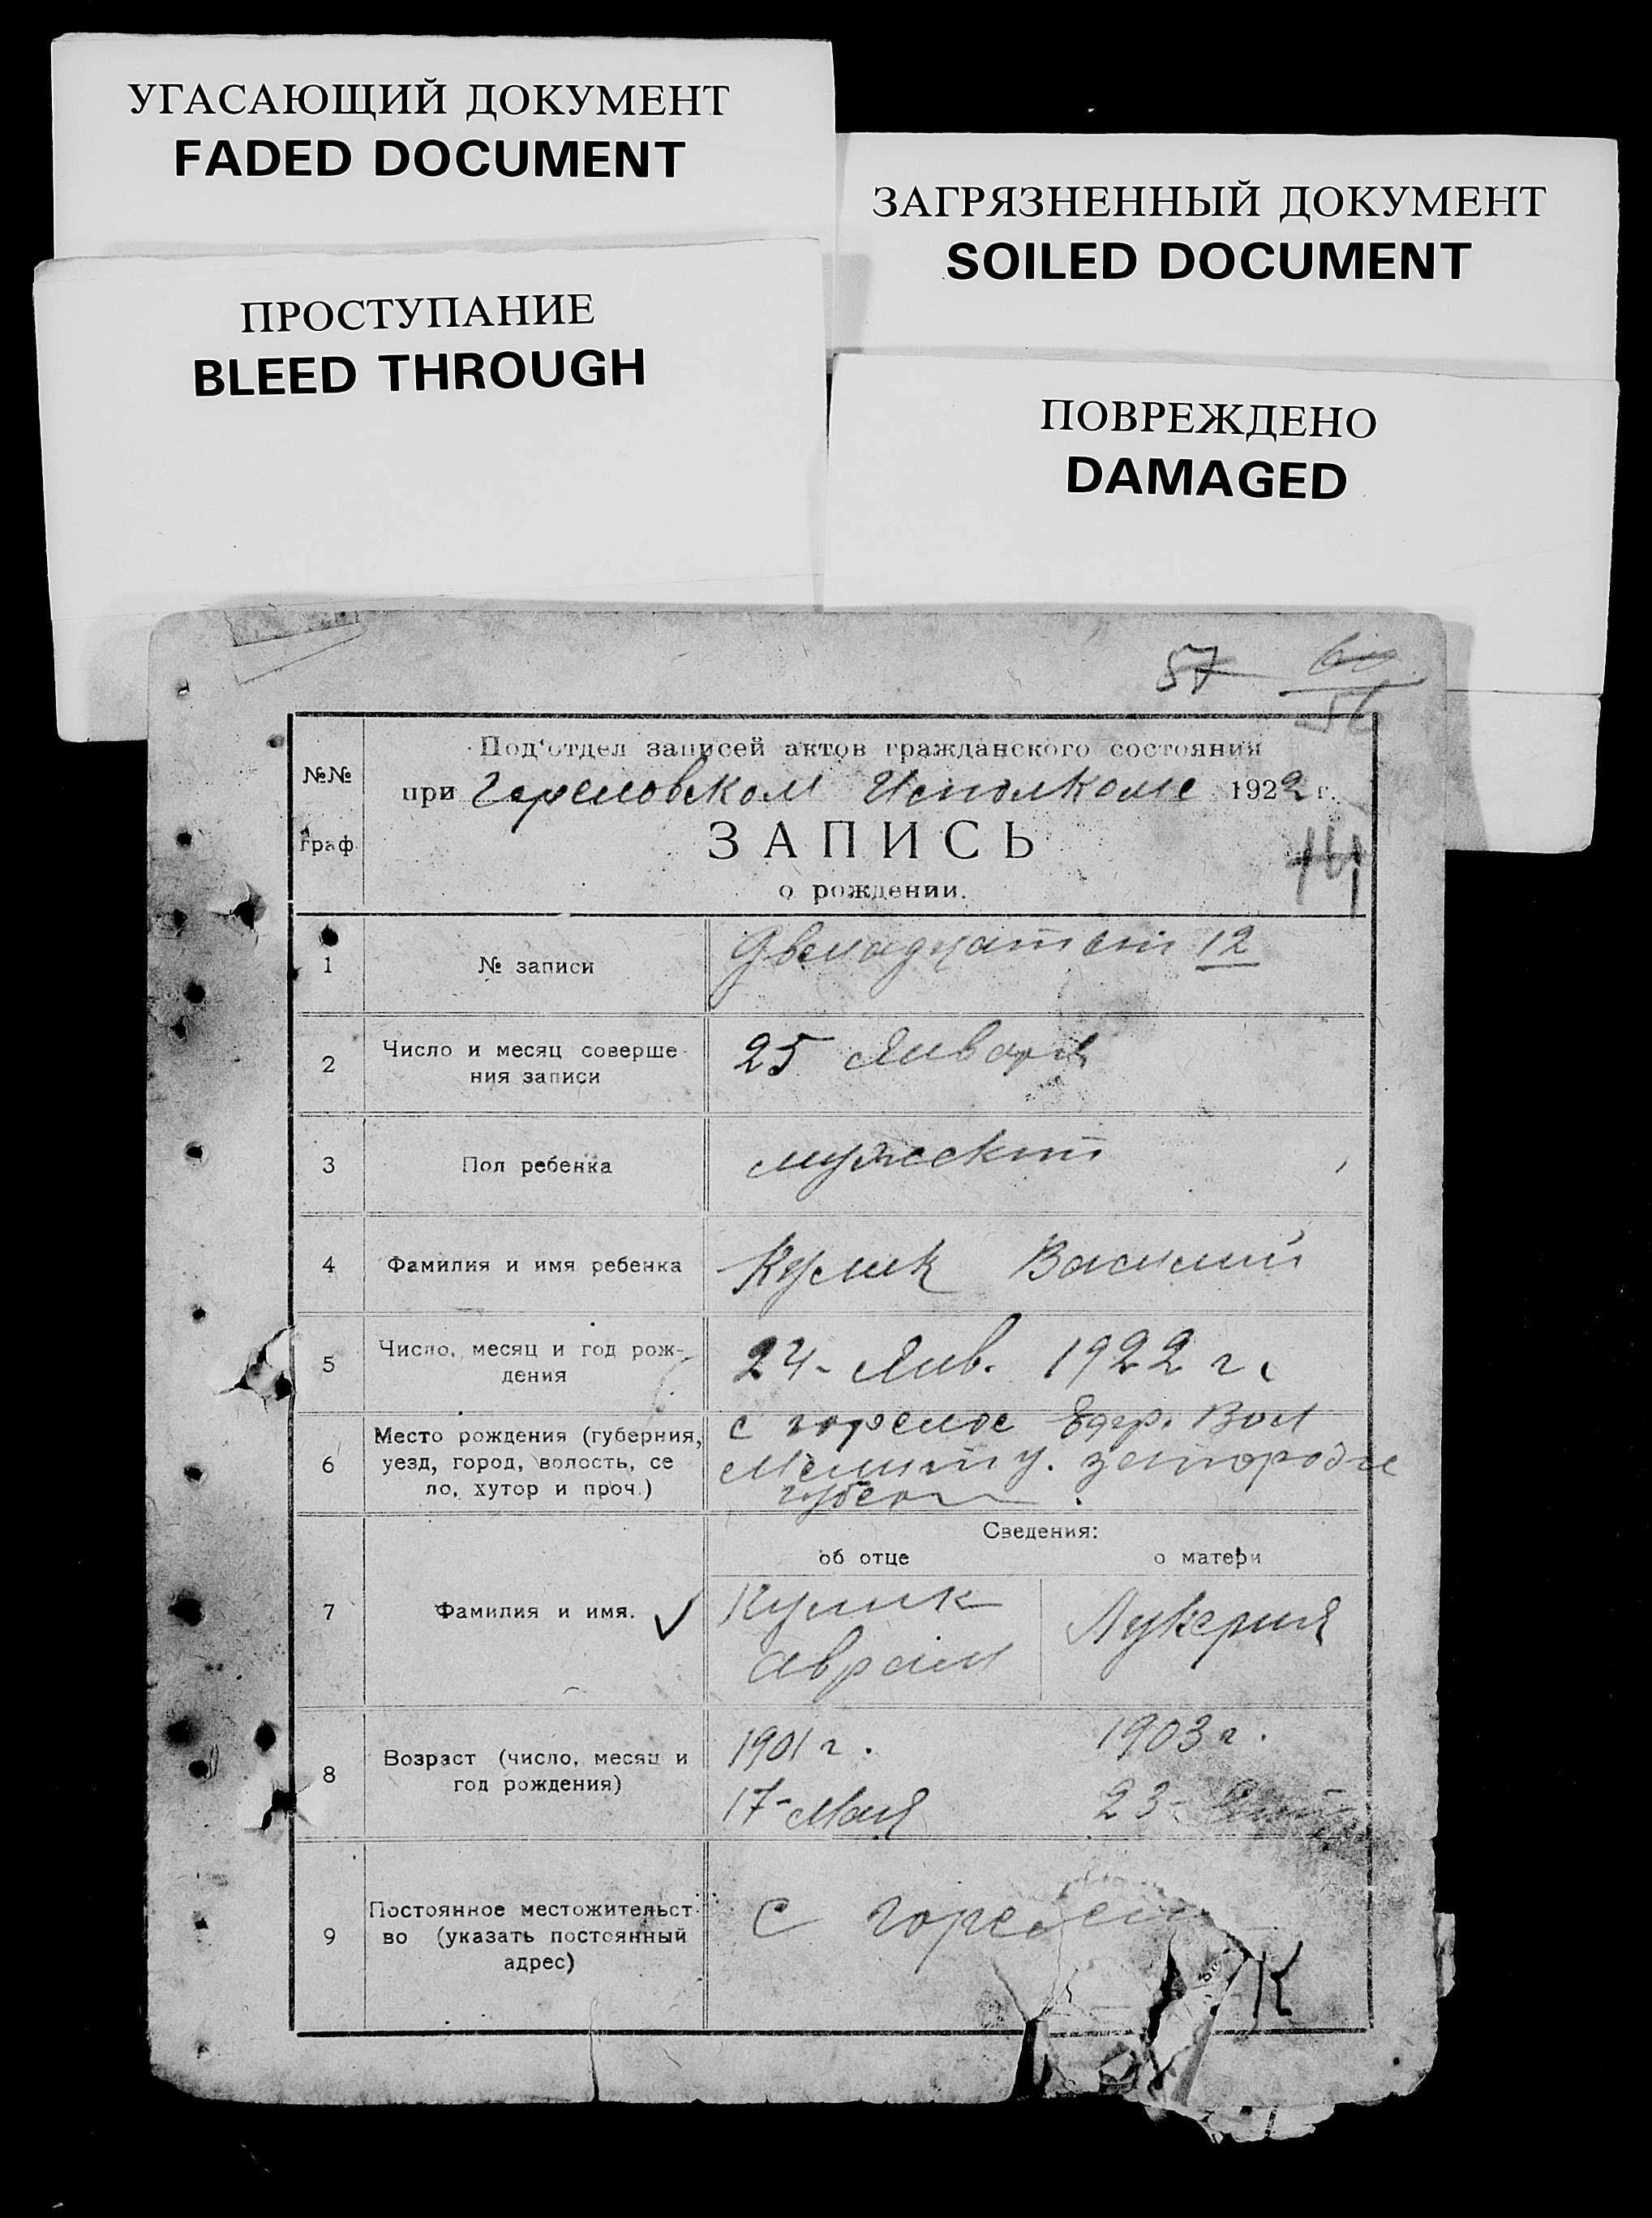 УГАСАЮЩИЙ ДОКУМЕНТ
FADED DOCUMENT
ЗАГРЯЗНЕННЫЙ ДОКУМЕНТ
SOILED DOCUMENT
ПРОСТУПАНИЕ
BLEED THROUGH
ПОВРЕЖДЕНО
DAMAGED
57
56
Под'отдел записей актов гражданского состояния
№№
при Гореловском Исполкоме 1922 г.
граф
ЗАПИСЬ
о рождении.
1
№ записи
Двенадцатый 12
2
Число и месяц соверше-
ния записи
25 Января
3
Пол ребенка
мужской
4
Фамилия и имя ребенка
Кулик Василий
5
Число, месяц и год рож-
дения
24- Янв. 1922 г.
6
Место рождения (губерния,
уезд, город, волость, се
ло, хутор и проч.)
с горелое Вол
у.
Сведения:
об отце
о матери
7
Фамилия и имя.
Кулик
Аврам
Лукерия
8
Возраст (число, месяц и
год рождения)
1901 г.
17-Мая
1903 г.
23-
9
Постоянное местожительст-
во (указать постоянный
адрес)
С
К